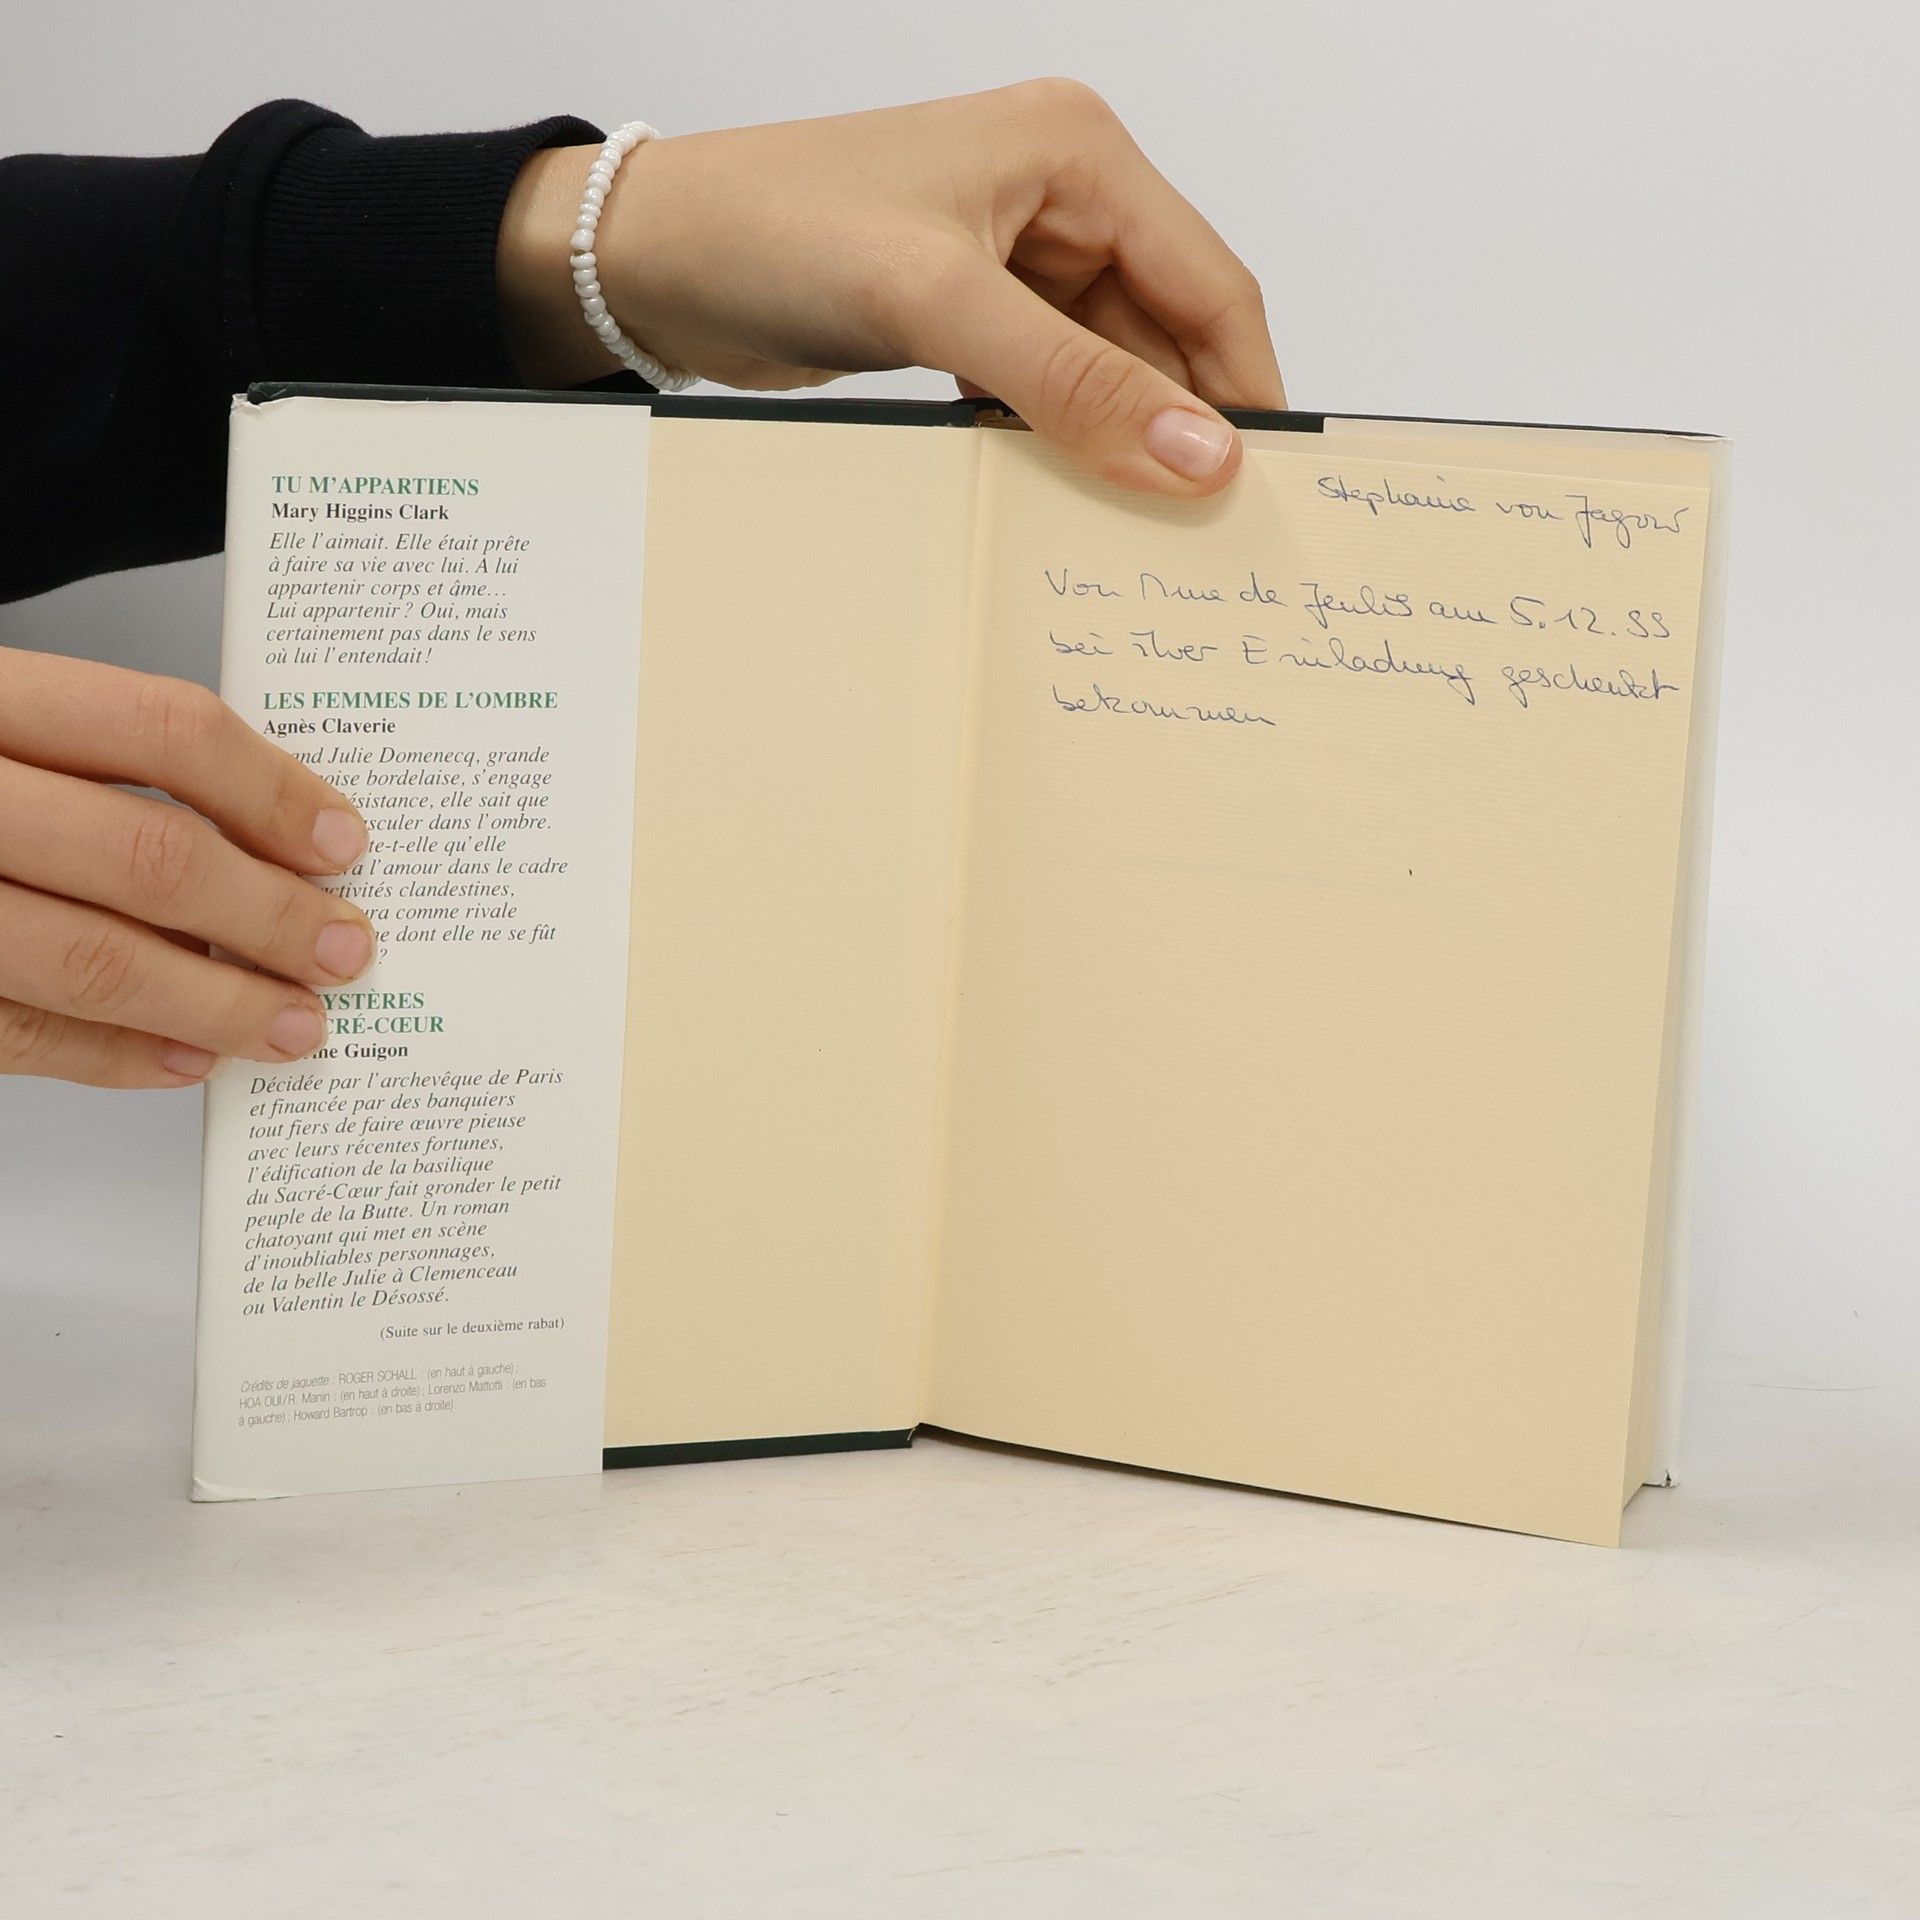 TU M'APPARTIENS
Mary Higgins Clark
Elle l'aimait. Elle était prête
à faire sa vie avec lui. A lui
appartenir corps et âme...
Lui appartenir ? Oui, mais
certainement pas dans le sens
où lui l'entendait !
LES FEMMES DE L'OMBRE
Agnès Claverie
Julie Domenecq, grande
bordelaise, s'engage
elle sait que
dans l'ombre.
qu'elle
l'amour dans le cadre
clandestines,
comme rivale
dont elle ne se fût
?
YSTÈRES
CRÉ-CŒUR
Guigon
Décidée par l'archevêque de Paris
et financée par des banquiers
tout fiers de faire œuvre pieuse
avec leurs récentes fortunes,
l'édification de la basilique
du Sacré-Cœur fait gronder le petit
peuple de la Butte. Un roman
chatoyant qui met en scène
d'inoubliables personnages,
de la belle Julie à Clemenceau
ou Valentin le Désossé.
(Suite sur le deuxième rabat)
Crédits de jaquette : ROGER SCHALL : (en haut à gauche) ;
HOA QUI/R. Manin : (en haut à droite) ; Lorenzo Mattotti : (en bas
à gauche) ; Howard Bartrop : (en bas à droite).
Stephanie von Jagow
Von Mme de am 5.12.99
bei ihrer Einladung geschenkt
bekommen